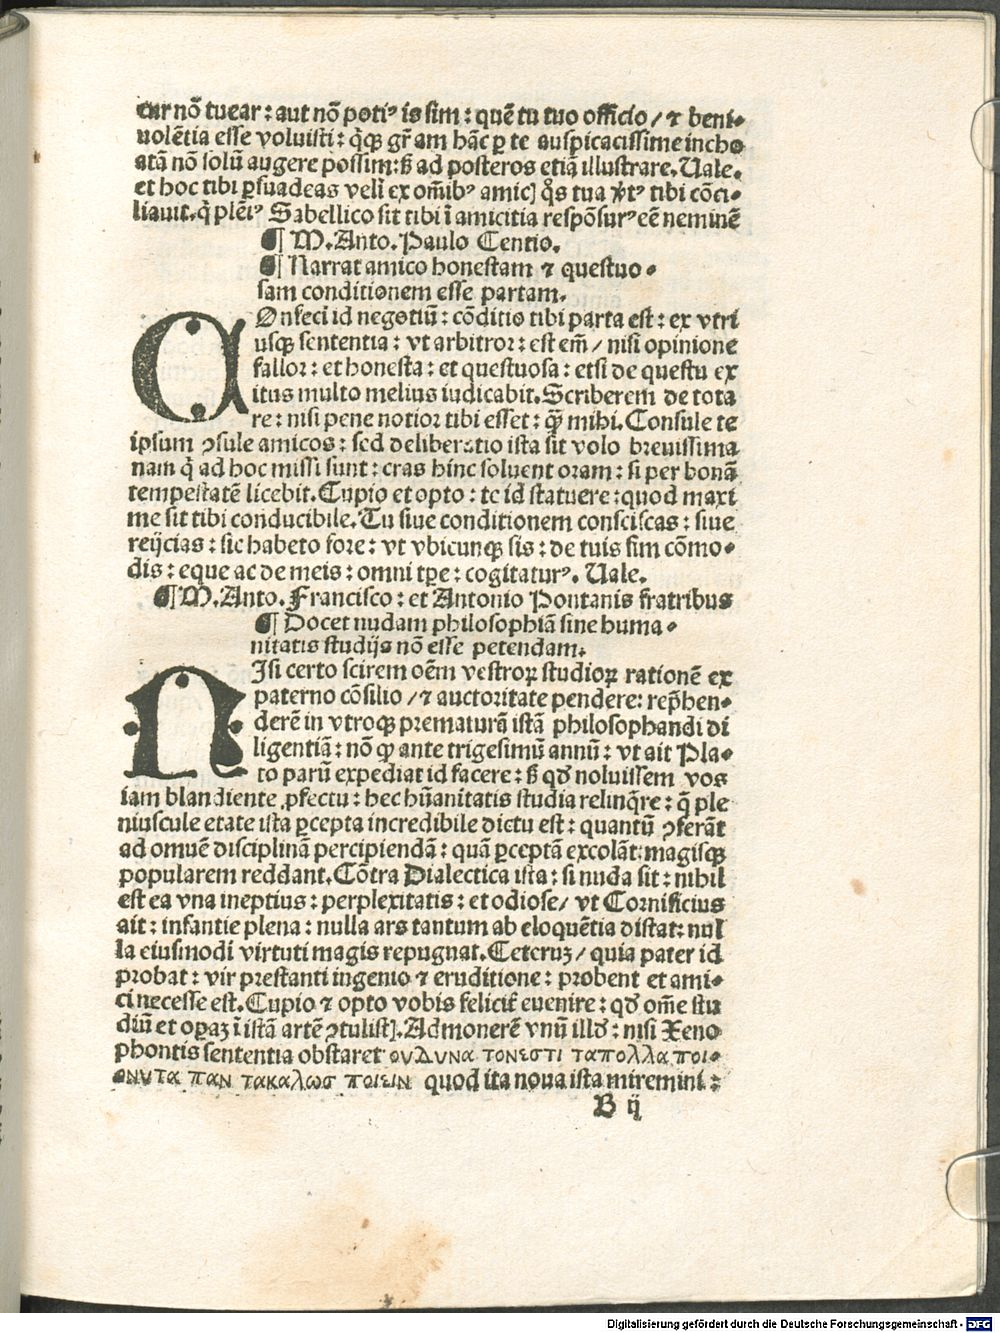 cur nõ tuear : aut nõ potiꝰ is sim : quẽ tu tuo officio / ⁊ beni⸗
uolẽtia esse voluisti : q̃q̃ȝ gr̃am hãc ꝑ te auspicacissime incho
atã nõ solũ augere possim : ß ad posteros etiã illustrare. Uale.
et hoc tibi ꝑsuadeas veli ex om̃ibꝰ amicꝭ q̃s tua v̾tꝰ tibi cõci⸗
liauit. q̃ plẽiꝰ Sabellico sit tibi ĩ amicitia respõsurꝰ eẽ neminẽ
¶ M. Anto. Paulo Centio.
¶ Narrat amico honestam ⁊ questuo⸗
sam conditionem esse partam.
COnfeci id negotiũ : cõditio tibi parta est : ex vtri
usqȝ sententia : vt arbitror : est em̃ / nisi opinione
fallor : et honesta : et questuosa : etsi de questu ex
itus multo melius iudicabit. Scriberem de tota
re : nisi pene notior tibi esset : q̃ȝ mihi. Consule te
ipsum ꝯsule amicos : sed deliberatio ista sit volo breuissima
nam q̃ ad hoc missi sunt : cras hinc soluent oram : si per bonã
tempestatẽ licebit. Cupio et opto : te id statuere : quod maxi
me sit tibi conducibile. Tu siue conditionem consciscas : siue
reijcias : sic habeto fore : vt vbicunqȝ sis : de tuis sim cõmo⸗
dis : eque ac de meis : omni tꝑe : cogitaturꝰ. Uale.
¶ M. Anto. Francisco : et Antonio Pontanis fratribus
¶ Docet nudam philosophiã sine huma⸗
nitatis studijs nõ esse petendam.
NIsi certo scirem oẽm vestroꝝ studioꝝ rationẽ ex
paterno cõsilio / ⁊ auctoritate pendere : rep̃hen⸗
derẽ in vtroqȝ prematurã istã philosophandi di
ligentiã : nõ qȝ ante trigesimũ annũ : vt ait Pla⸗
to parũ expediat id facere : ß qđ noluissem vos
iam blandiente ꝓfectu : hec hũanitatis studia relinq̃re : q̃ ple
niuscule etate ista ꝑcepta incredibile dictu est : quantũ ꝯferãt
ad omnẽ disciplinã percipiendã : quã ꝑceptã excolãt : magisqȝ
popularem reddant. Cõtra Dialectica ista : si nuda sit : nihil
est ea vna ineptius : perplexitatis : et odiose / vt Cornificius
ait : infantie plena : nulla ars tantum ab eloquẽtia distat : nul
la eiusmodi virtuti magis repugnat. Ceteruȝ / quia pater id
probat : vir prestanti ingenio ⁊ eruditione : probent et ami⸗
ci necesse est. Cupio ⁊ opto vobis felicit̃ euenire : qđ om̃e stu
diũ et oꝑaȝ ĩ istã artẽ ꝯtulistꝭ. Admonerẽ vnũ illđ : nisi Xeno
phontis sententia obstaret ουδυνα τονεστι ταπολλα ποι⸗
ονυτα παν τακαλωσ ποιειν quod ita noua ista miremini :
B ij
Digitalisierung gefördert durch die Deutsche Forschungsgemeinschaft - DFG